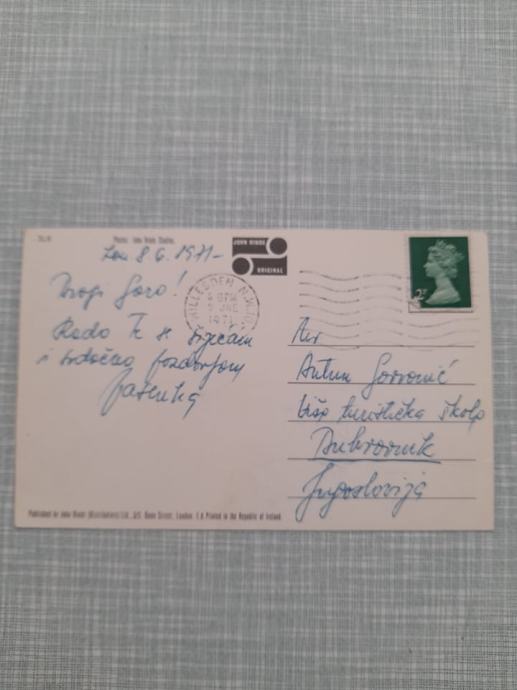 Photo: John Hinde Studios.
JOHN HINDE
ORIGINAL
Lon 8 6. 1971-
Dragi Goro!
Rado Te se sjećam
i srdačno pozdravljam
Jasenka
WILLESDEN N.W.10
PM
JNE
1971
2P
Mr
Antun
Viša turistička škola
Dubrovnik
Jugoslavija
Published by John Hinde (Distributors) Ltd., Dean Street, London. Printed in the Republic of Ireland.